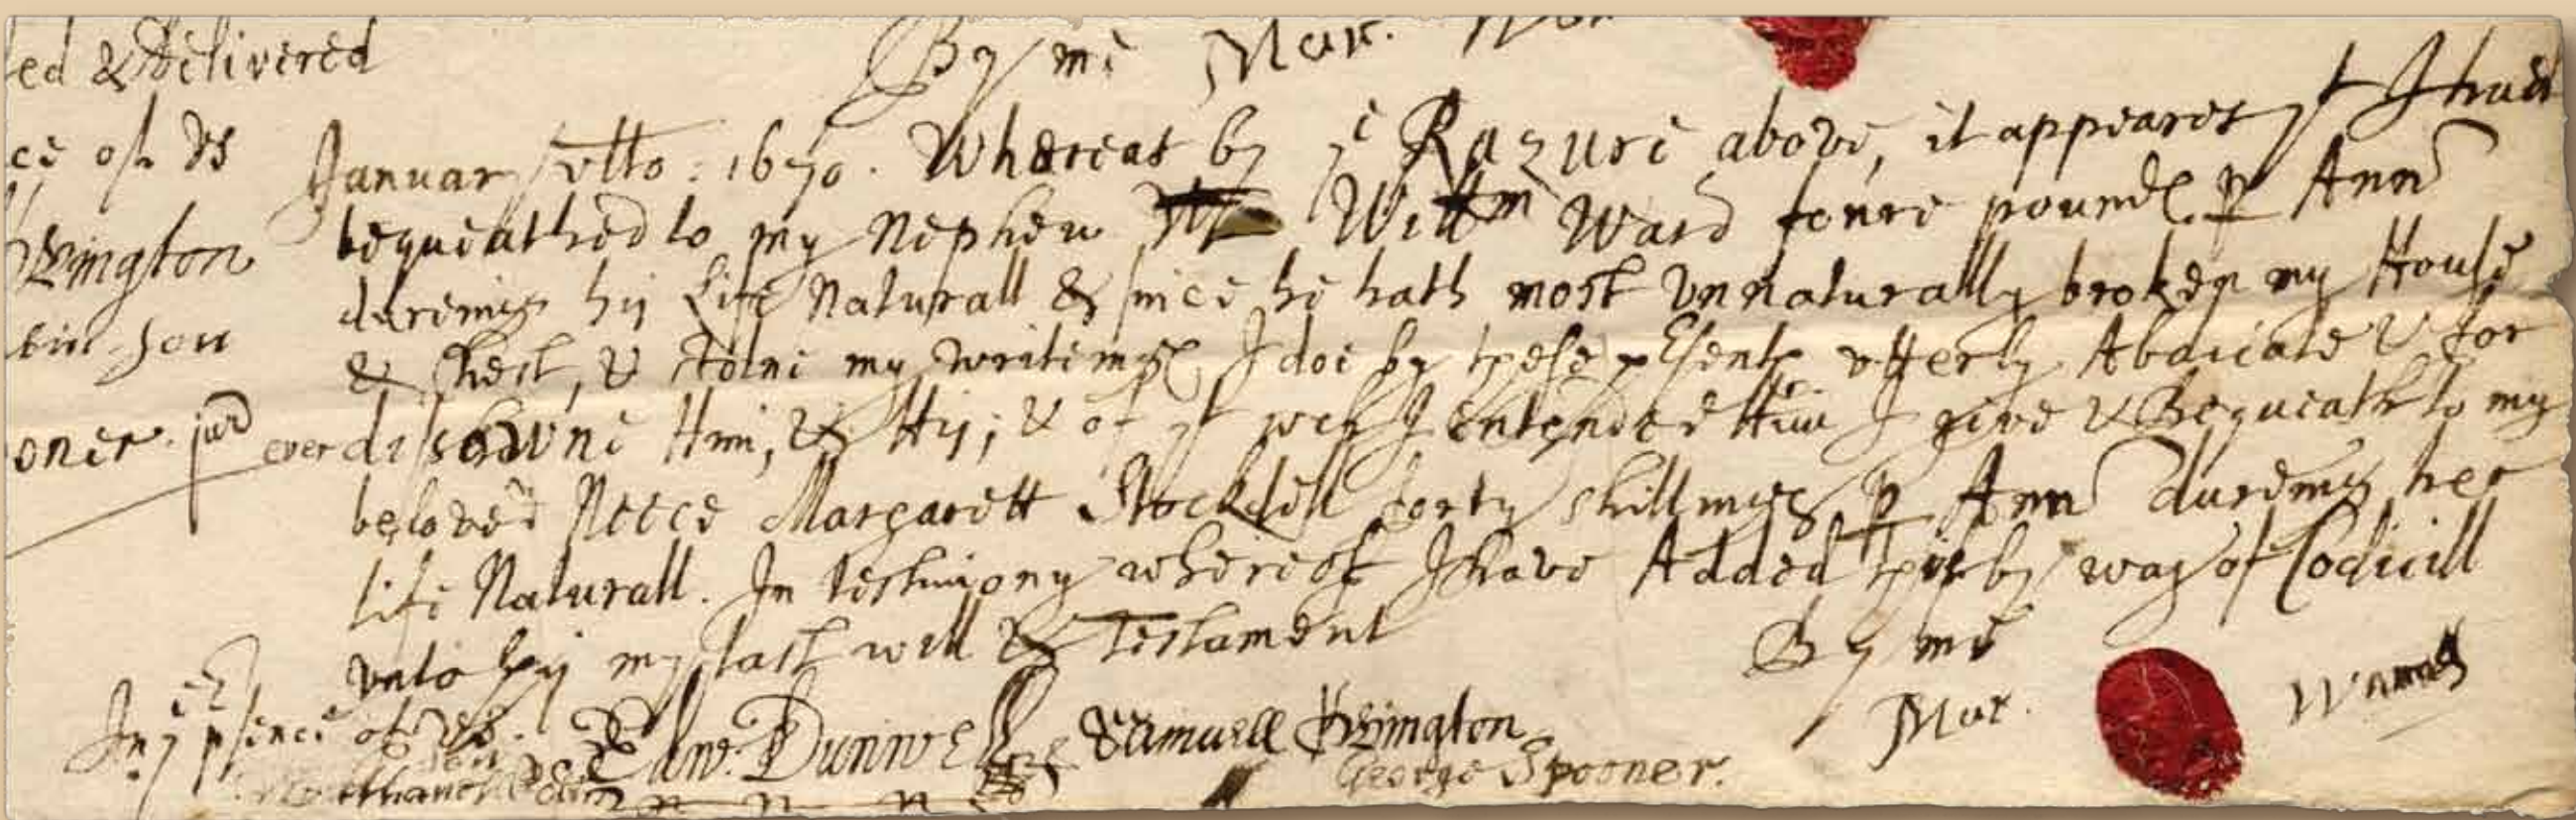 ed & Delivered
By me Mar.
ce of us
January ulto: 1670. Whereas by ye Razure above, it appeares yt I had
bequeathed to my Nephew Willm Ward foure pounds p Ann
dureing his Life Naturall & since he hath most Unnaturally broken my House
& Chest, & stolne my writeings I doe by these psents utterly Abdicate & for
ever dissowne Him, & His; & of yt wch I entended Him I give & Bequeath to my
beloved Neece Margarett Stockdell forty shillings p Ann dureing her
life Naturall. In testimony whereof I have Added this by way of Codicill
unto this my last will & Testament
By me
Mar.
In ye psence of us.
Edw: Dunwell Samuell
George Spooner.